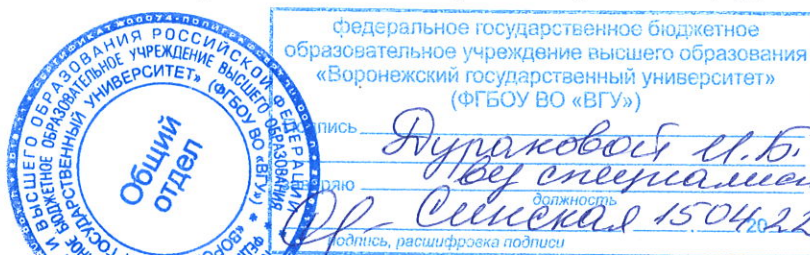 федеральное государственное бюджетное
образовательное учреждение высшего образования
«Воронежский государственный университет»
(ФГБОУ ВО «ВГУ»)
Дураковой И.Б.
должность
Синская 15 04 2022
подпись, расшифровка подписи
Общий
отдел
ВЫСШЕГО ОБРАЗОВАНИЯ РОССИЙСКОЙ ФЕДЕРАЦИИ
БЮДЖЕТНОЕ ОБРАЗОВАТЕЛЬНОЕ УЧРЕЖДЕНИЕ ВЫСШЕГО ОБРАЗОВАНИЯ
УНИВЕРСИТЕТ» (ФГБОУ ВО «ВГУ»)